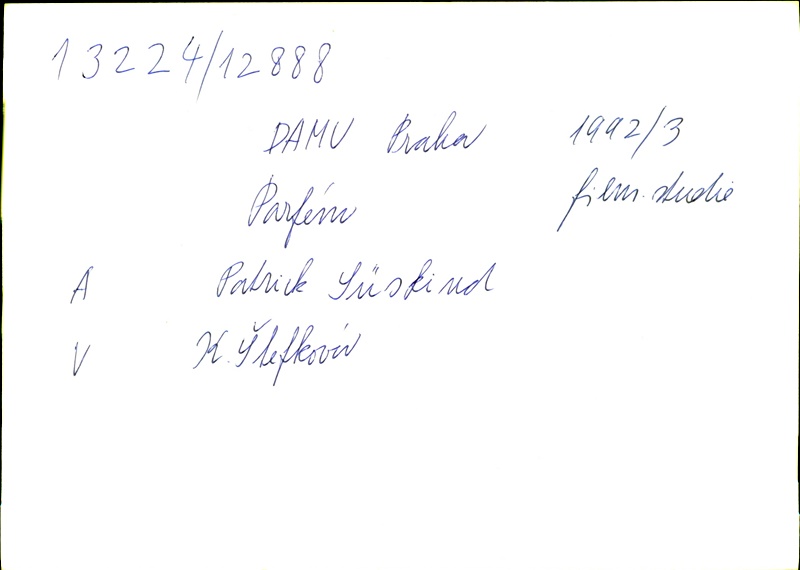 13224/12888
DAMU Praha 1992/3
Parfém film. studie
A Patrick Süskind
V K. Štefková